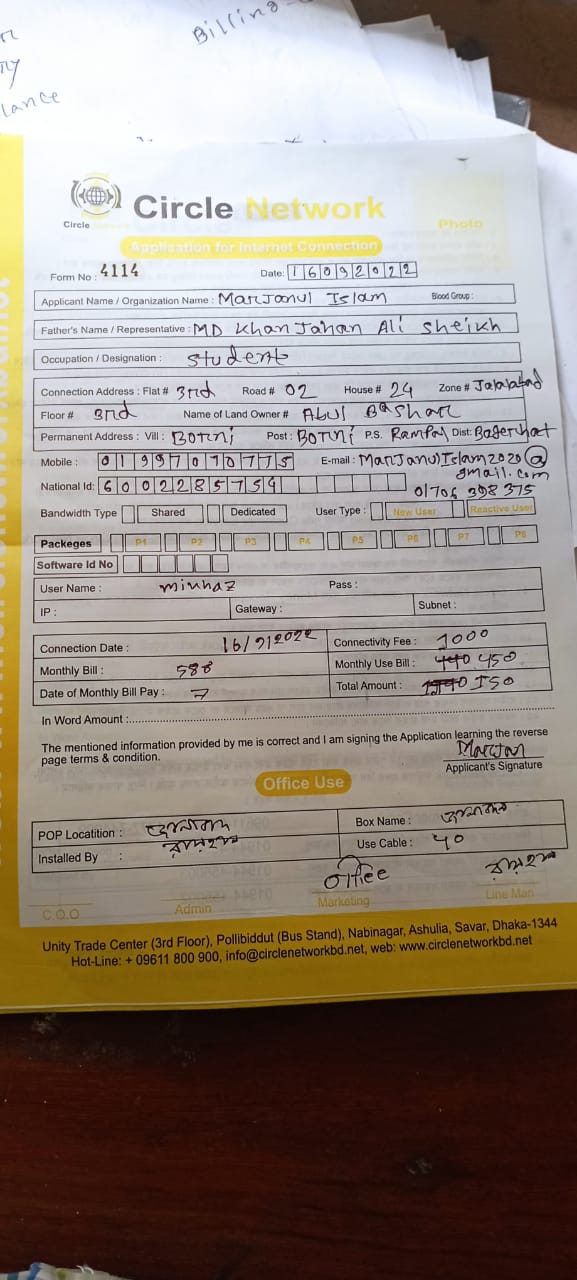 Billing
lance
Circle Network
Circle
Photo
Application for Internet Connection
Form No : 4114 Date: 16092022
Applicant Name / Organization Name : Marjanul Islam Blood Group :
Father's Name / Representative : MD Khan Jahan Ali Sheikh
Occupation / Designation : Student
Connection Address : Flat # 3rd Road # 02 House # 24 Zone # Jalalabad
Floor # 3rd Name of Land Owner # Abul Bashar
Permanent Address : Vill : Botni Post : Botni P.S. Rampal Dist: Bagerhat
Mobile : 01997070775 E-mail : MarJanulIslam2020@
gmail.com
National Id: 6002285759 01706 398 375
Bandwidth Type Shared Dedicated User Type : New User Reactive User
Packeges P1 P2 P3 P4 P5 P6 P7 P8
Software Id No
User Name : minhaz Pass :
IP : Gateway : Subnet :
Connection Date : 16/9/2022 Connectivity Fee : 1000
Monthly Bill : 580 Monthly Use Bill : 450
Date of Monthly Bill Pay : 7 Total Amount :
In Word Amount :
The mentioned information provided by me is correct and I am signing the Application learning the reverse
page terms & condition.
Marjan
Applicant's Signature
Office Use
POP Locatition : Box Name :
Installed By : Use Cable : ৭০
অফিস
C.O.O Admin Marketing Line Man
Unity Trade Center (3rd Floor), Pollibiddut (Bus Stand), Nabinagar, Ashulia, Savar, Dhaka-1344
Hot-Line: + 09611 800 900, info@circlenetworkbd.net, web: www.circlenetworkbd.net